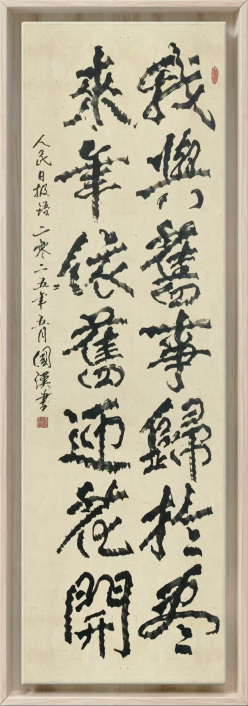 我與舊事歸於盡
來年依舊迎花開
人民日报语 二零二五年五月 國漢書